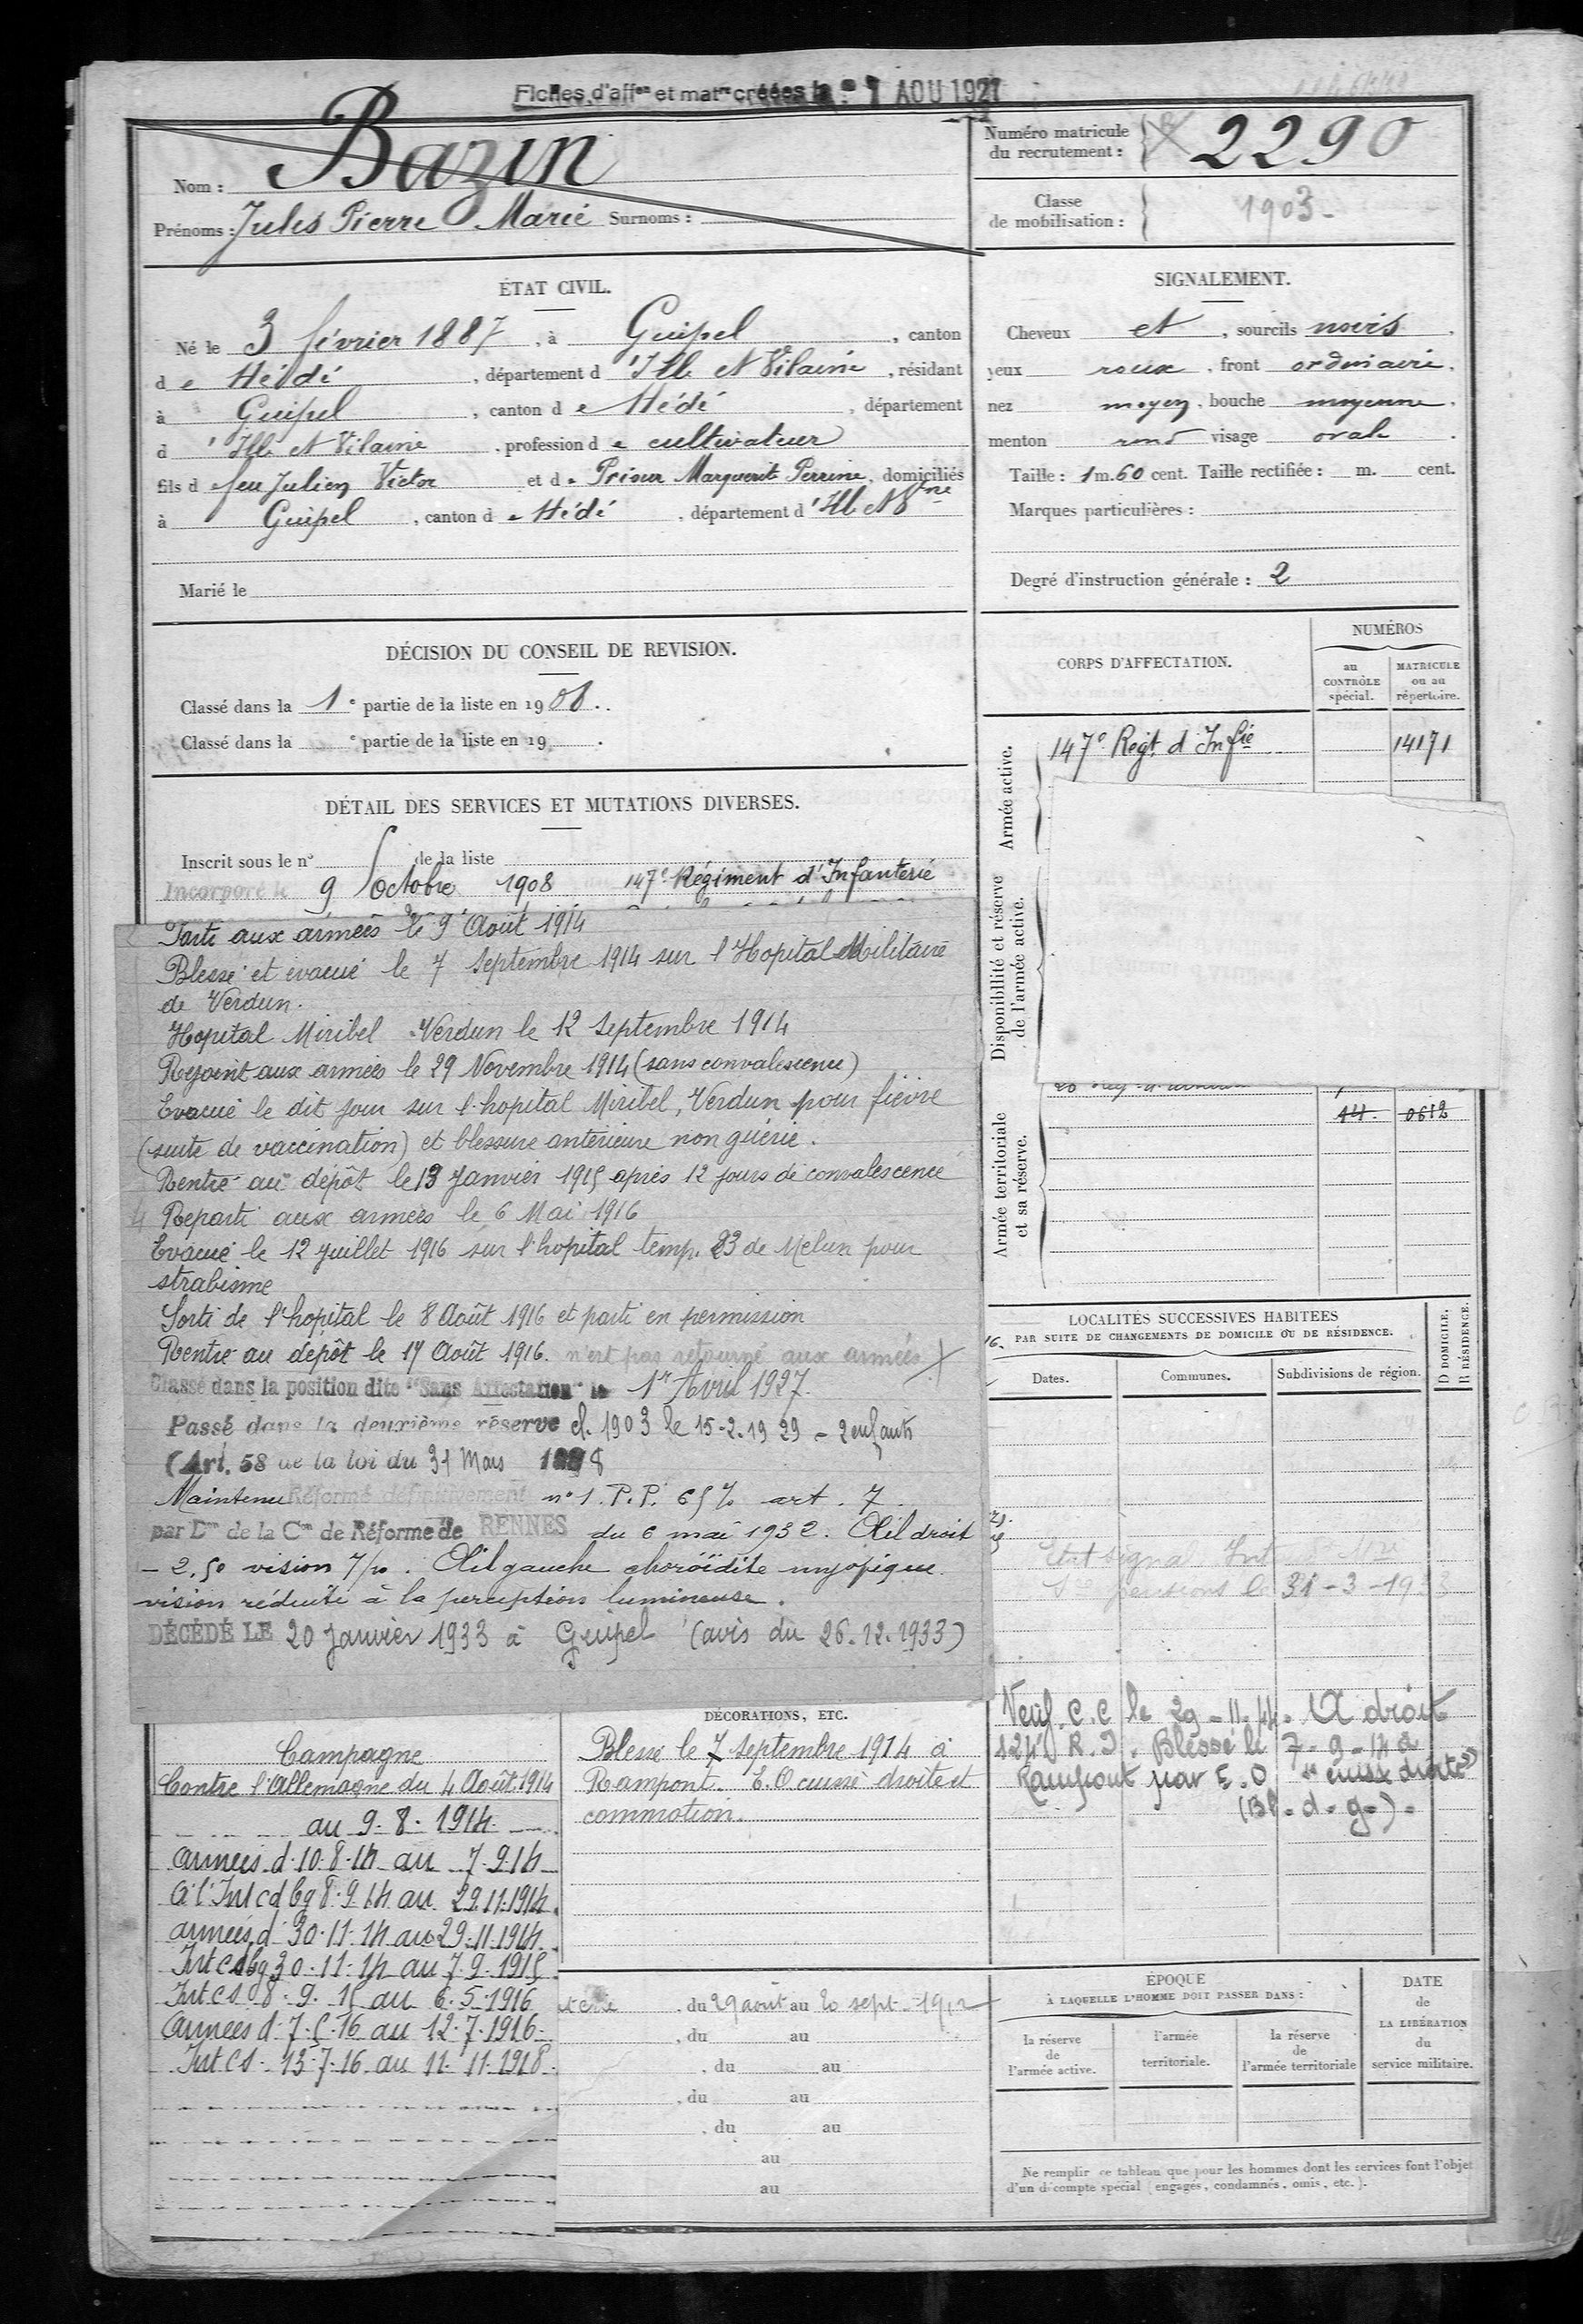 Fiches d'affon et matre créées le 1 AOU 1921
Nom : Bazin
Prénoms : Jules Pierre Marie Surnoms :
Numéro matricule
du recrutement : 2290
Classe
de mobilisation : 1903
ÉTAT CIVIL.
Né le 3 février 1887, à Guipel, canton
de Hédé, département d'Ille et Vilaine, résidant
à Guipel, canton de Hédé, département
d'Ille et Vilaine, profession de cultivateur
fils de feu Julien Victor et de Prioux Marguerite Perrine, domiciliés
à Guipel, canton de Hédé, département d'Ille et Vne
Marié le
SIGNALEMENT.
Cheveux et, sourcils noirs,
yeux roux, front ordinaire,
nez moyen, bouche moyenne,
menton rond visage ovale.
Taille : 1 m. 60 cent. Taille rectifiée : m. cent.
Marques particulières :
Degré d'instruction générale : 2
DÉCISION DU CONSEIL DE REVISION.
Classé dans la 1e partie de la liste en 1908.
Classé dans la e partie de la liste en 19 .
DÉTAIL DES SERVICES ET MUTATIONS DIVERSES.
Inscrit sous le n° de la liste
Incorporé le 9 octobre 1908 147e Régiment d'Infanterie
Parti aux armées le 9 Août 1914
Blessé et évacué le 7 Septembre 1914 sur l'Hopital Militaire
de Verdun.
Hopital Miribel Verdun le 12 Septembre 1914
Rejoint aux armées le 29 Novembre 1914 (sans convalescence)
Evacué le dit jour sur l'hopital Miribel, Verdun pour fièvre
(suite de vaccination) et blessure antérieure non guérie.
Rentré au dépôt le 13 Janvier 1915 après 12 jours de convalescence
Reparti aux armées le 6 Mai 1916
Evacué le 12 Juillet 1916 sur l'hopital temp. 23 de Melun pour
strabisme
Sorti de l'hopital le 8 Août 1916 et parti en permission
Rentré au dépôt le 17 Août 1916. n'est pas retourné aux armées
Classé dans la position dite "Sans Affectation" le 1er Avril 1927.
Passé dans la deuxième réserve cl. 1903 le 15-2-1929 - 2 enfants
(Art. 58 de la loi du 31 Mars 1928
Maintenu Réformé définitivement n° 1. P.P. 65% art. 7.
par Don de la Con de Réforme de RENNES du 6 mai 1932. Œil droit
- 2,50 vision 7/10. Œil gauche choroïdite myopique.
vision réduite à la perception lumineuse.
DÉCÉDÉ LE 20 janvier 1933 à Guipel (avis du 26.12.1933)
CORPS D'AFFECTATION.
NUMÉROS
au
CONTRÔLE
spécial.
MATRICULE
ou au
répertoire.
Armée active.
147e Regt d'Infie 14171
Disponibilité et réserve
de l'armée active.
14. 0612
Armée territoriale
et sa réserve.
LOCALITÉS SUCCESSIVES HABITÉES
PAR SUITE DE CHANGEMENTS DE DOMICILE OU DE RÉSIDENCE.
Dates.
Communes.
Subdivisions de région.
D DOMICILE.
R RÉSIDENCE.
Etat signal
pensions le 31-3-1933
C.C le 29-11-44. A droit
R.I. Blessé le 7-9-14 à
Rampont par E.O "cuisse droite"
(Bl-d-g-)-
Campagne
Contre l'Allemagne du 4 Août 1914
au 9.8.1914.
armées d. 10.8.14 au 7.9.14
à l'Int cd bg 8.9.14 au 29.11.1914.
armées d 30.11.14 au 29.11.1914.
Int cd bg 30.11.14 au 7.9.1915.
Int cs 8.9.15 au 6.5.1916
armées d. 7.5.16 au 12.7.1916.
Int cs. 13.7.16 au 11.11.1918.
DÉCORATIONS, ETC.
Blessé le 7 septembre 1914 à
Rampont. E.O cuisse droite et
commotion.
du 29 août au 20 sept. 1912
, du au
, du au
, du au
, du au
au
au
ÉPOQUE
À LAQUELLE L'HOMME DOIT PASSER DANS :
la réserve
de
l'armée active.
l'armée
territoriale.
la réserve
de
l'armée territoriale
DATE
de
LA LIBÉRATION
du
service militaire.
Ne remplir ce tableau que pour les hommes dont les services font l'objet
d'un décompte spécial (engagés, condamnés, omis, etc.).